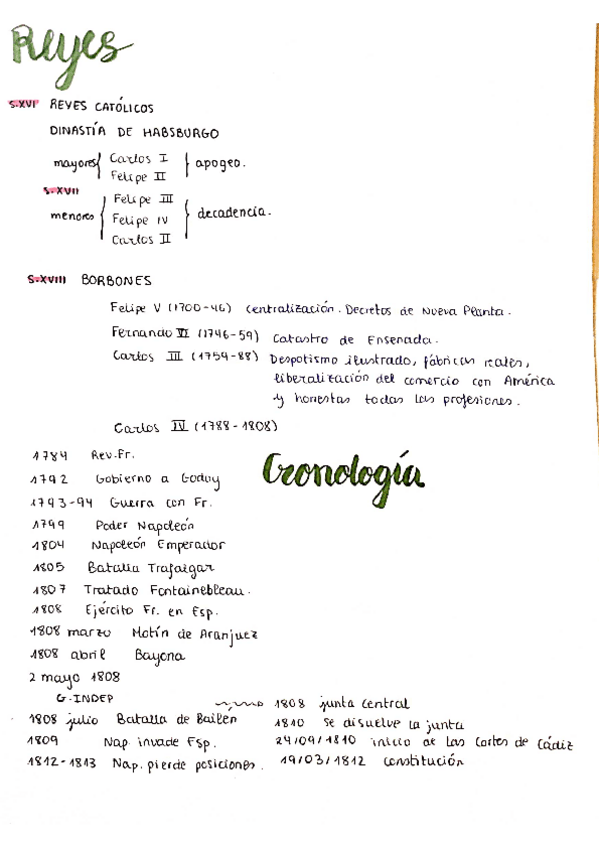 Reyes
S.XVI REYES CATÓLICOS
DINASTÍA DE HABSBURGO
mayores { Carlos I } apogeo.
Felipe II
S.XVII
menores { Felipe III
Felipe IV } decadencia.
Carlos II
S.XVIII BORBONES
Felipe V (1700-46) Centralización. Decretos de Nueva Planta.
Fernando VI (1746-59) Catastro de Ensenada.
Carlos III (1759-88) Despotismo ilustrado, fábricas reales,
liberalización del comercio con América
y honestas todas las profesiones.
Carlos IV (1788-1808)
Cronología
1789 Rev.Fr.
1792 Gobierno a Godoy
1793-94 Guerra con Fr.
1799 Poder Napoleón
1804 Napoleón Emperador
1805 Batalla Trafalgar
1807 Tratado Fontainebleau.
1808 Ejército Fr. en Esp.
1808 marzo Motín de Aranjuez
1808 abril Bayona
2 mayo 1808
G.INDEP
1808 junta central
1808 julio Batalla de Bailén
1810 se disuelve la junta
1809 Nap. invade Esp.
24/09/1810 inicio de las Cortes de Cádiz
1812-1813 Nap. pierde posiciones.
19/03/1812 constitución